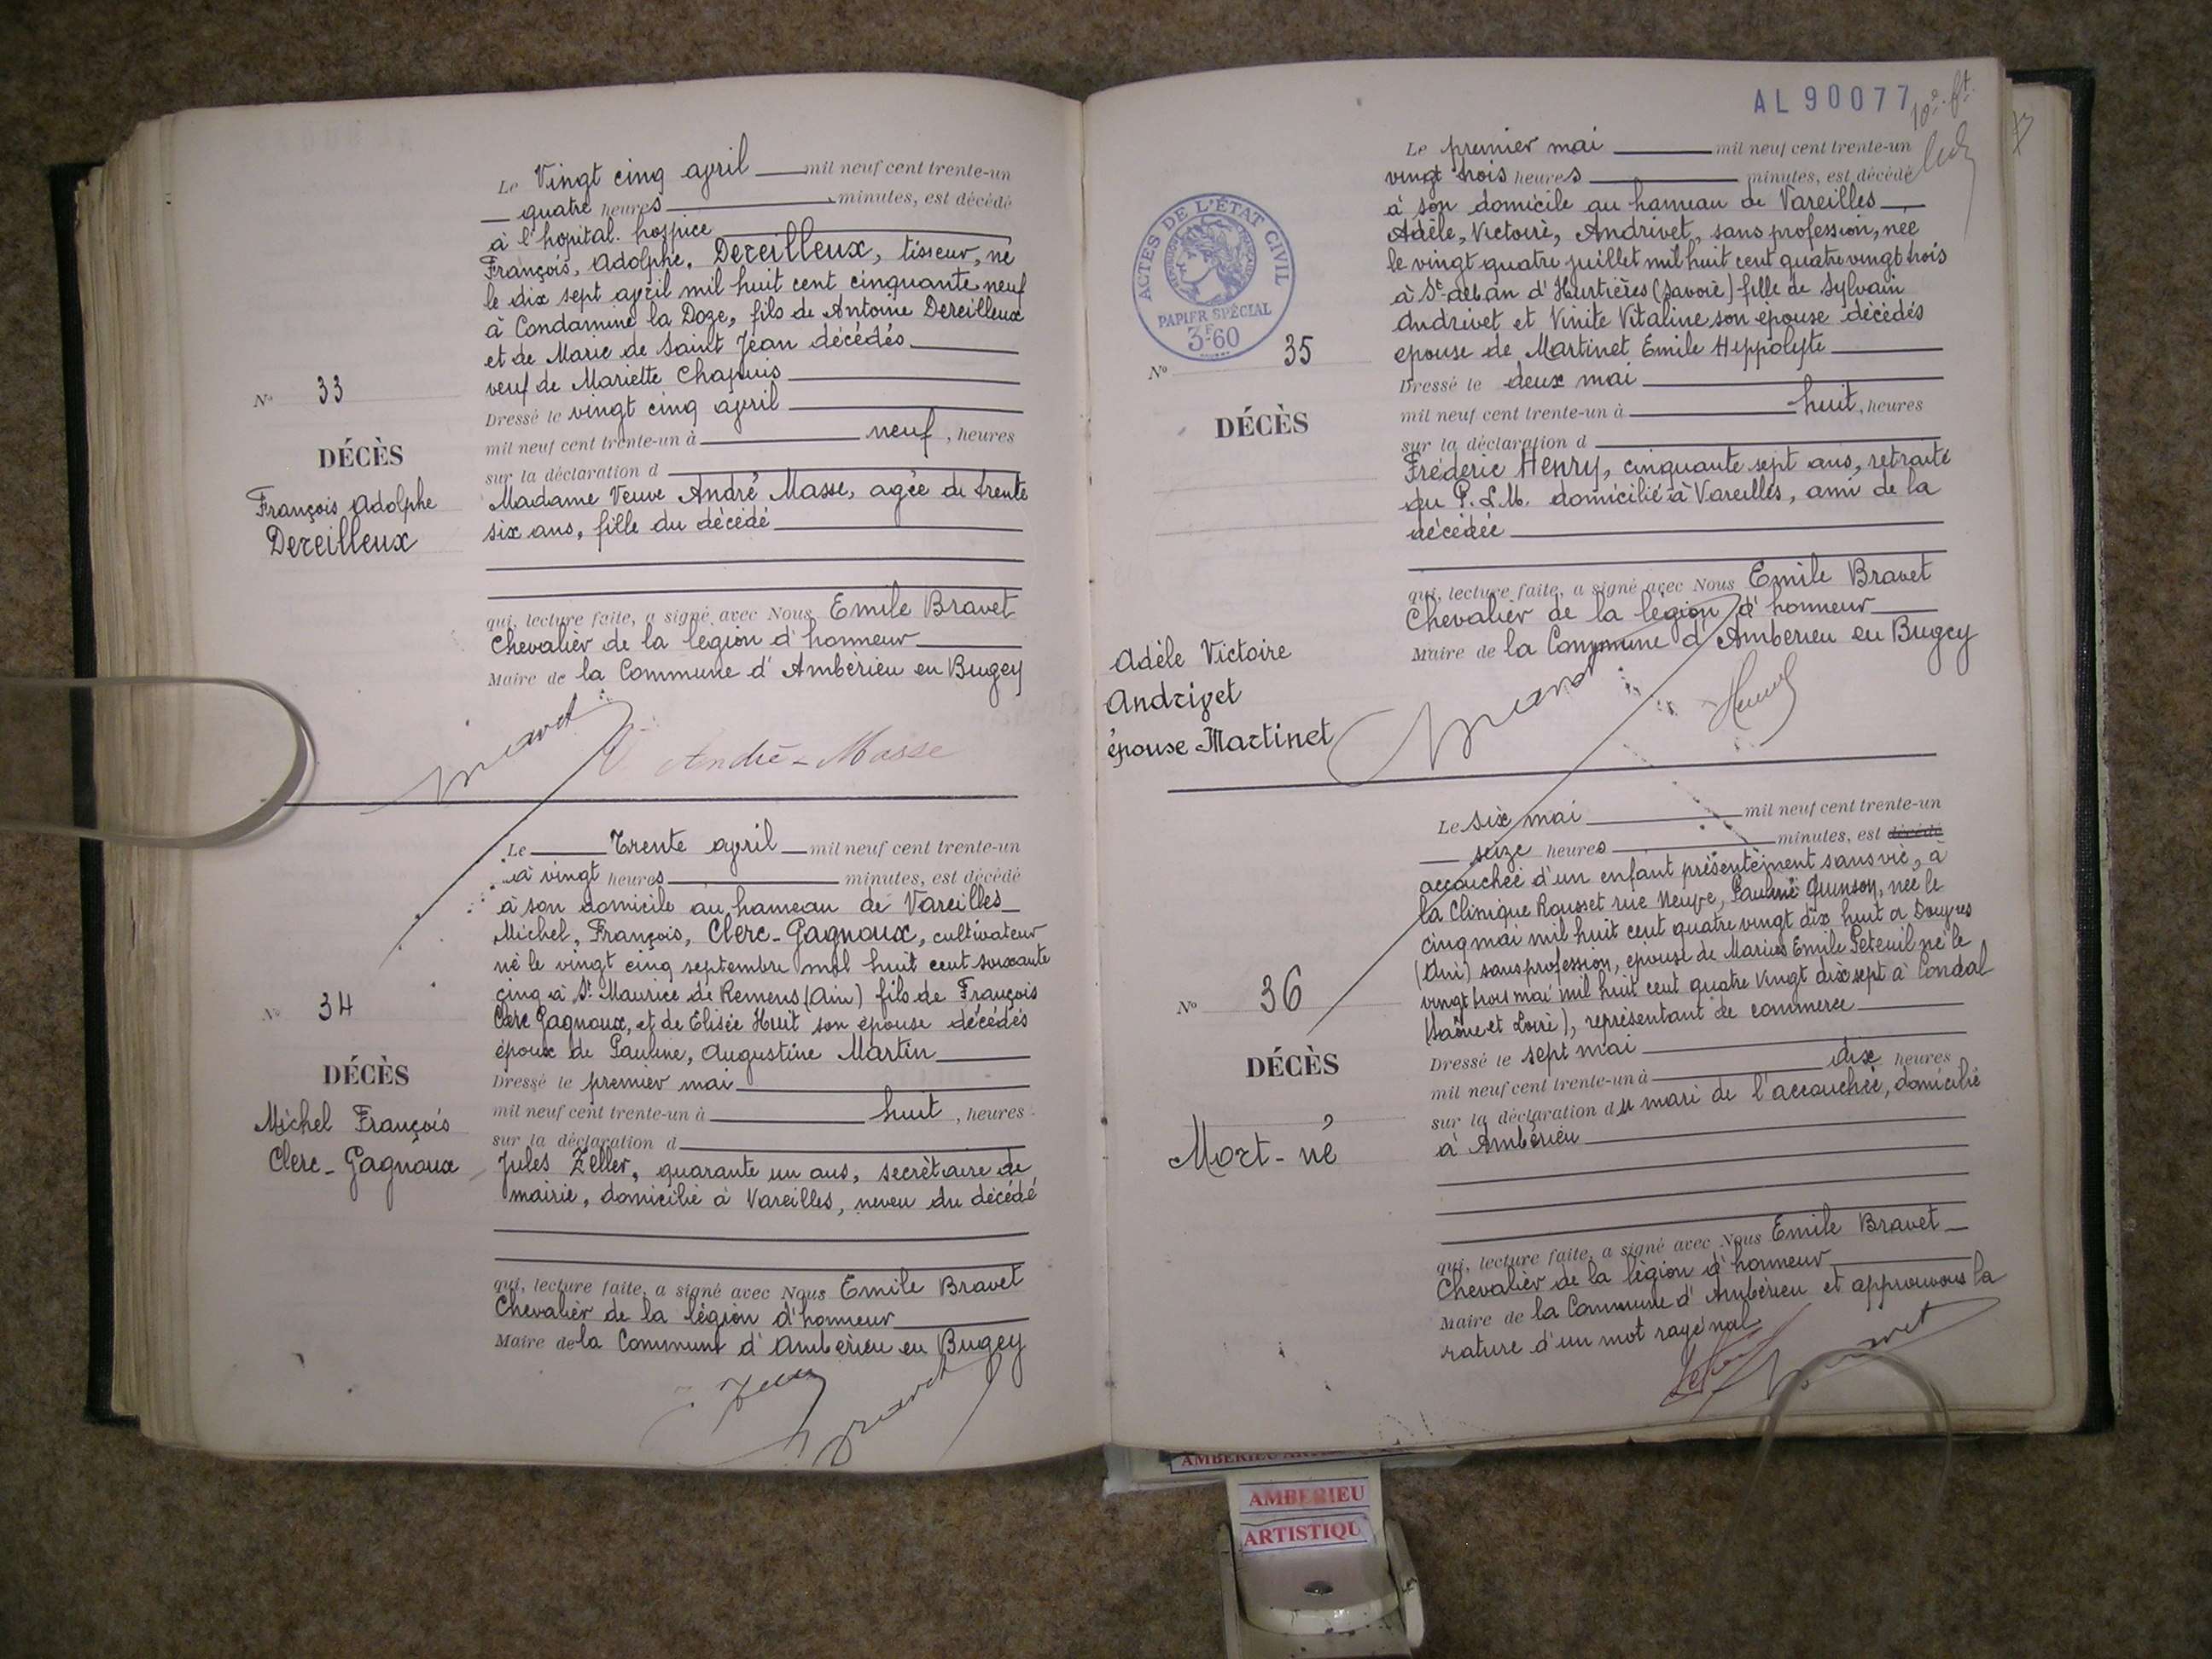 Le Vingt cinq avril mil neuf cent trente-un
quatre heures minutes, est décédé
à l'hopital. hospice
François, Adolphe, Dereilleux, tisseur, né
le dix sept avril mil huit cent cinquante neuf
à Condamine la Doze, fils de Antoine Dereilleux
et de Marie de Saint Jean décédés
veuf de Mariette Chapuis
Dressé le vingt cinq avril
mil neuf cent trente-un à neuf, heures
sur la déclaration d
Madame Veuve André Masse, agée de trente
six ans, fille du décédé
qui, lecture faite, a signé avec Nous Emile Bravet
Chevalier de la légion d'honneur
Maire de la Commune d'Ambérieu en Bugey
N° 33
DÉCÈS
François Adolphe
Dereilleux
Bravet
Vve André-Masse
Le Trente avril mil neuf cent trente-un
à vingt heures minutes, est décédé
à son domicile au hameau de Vareilles
Michel, François, Clerc-Gagnoux, cultivateur
né le vingt cinq septembre mil huit cent soixante
cinq à St Maurice de Remens (Ain) fils de François
Clerc Gagnoux, et de Elisée Huit son épouse décédés
époux de Pauline, Augustine Martin
Dressé le premier mai
mil neuf cent trente-un à huit, heures
sur la déclaration d
Jules Zeller, quarante un ans, secrétaire de
mairie, domicilié à Vareilles, neveu du décédé
qui, lecture faite, a signé avec Nous Emile Bravet
Chevalier de la légion d'honneur
Maire de la Commune d'Ambérieu en Bugey
N° 34
DÉCÈS
Michel François
Clerc-Gagnoux
Zeller
Bravet
AL90077
ACTES DE L'ÉTAT CIVIL
PAPIER SPÉCIAL
3F60
Le premier mai mil neuf cent trente-un
vingt trois heures minutes, est décédé
à son domicile au hameau de Vareilles
Adèle, Victoire, Andrivet, sans profession, née
le vingt quatre juillet mil huit cent quatre vingt trois
à St-Alban d'Hurtières (Savoie) fille de Sylvain
Andrivet et Vinite Vitaline son épouse décédés
epouse de Martinet Emile Heppolyte
Dressé le deux mai
mil neuf cent trente-un à huit, heures
sur la déclaration d
Fréderic Henry, cinquante sept ans, retraité
du P.L.M. domicilié à Vareilles, ami de la
décédée
qui, lecture faite, a signé avec Nous Emile Bravet
Chevalier de la légion d'honneur
Maire de la Commune d'Ambérieu en Bugey
N° 35
DÉCÈS
Adèle Victoire
Andrivet
épouse Martinet
Bravet
Henry
Le six mai mil neuf cent trente-un
seize heures minutes, est décédé
accouchée d'un enfant présentement sans vie, à
la Clinique Rousset rue Neuve, Pauline Quinson, née le
cinq mai mil huit cent quatre vingt dix huit à Douvres
(Ain) sans profession, épouse de Marius Emile Peteuil né le
vingt trois mai mil huit cent quatre vingt dix sept à Condal
(Saône et Loire), représentant de commerce
Dressé le sept mai
mil neuf cent trente-un à dix heures
sur la déclaration du mari de l'accouchée, domicilié
à Ambérieu
qui, lecture faite, a signé avec Nous Emile Bravet
Chevalier de la légion d'honneur
Maire de la Commune d'Ambérieu et approuvons la
rature d'un mot rayé nul
N° 36
DÉCÈS
Mort-né
Bravet
AMBERIEU
AMBERIEU
ARTISTIQU